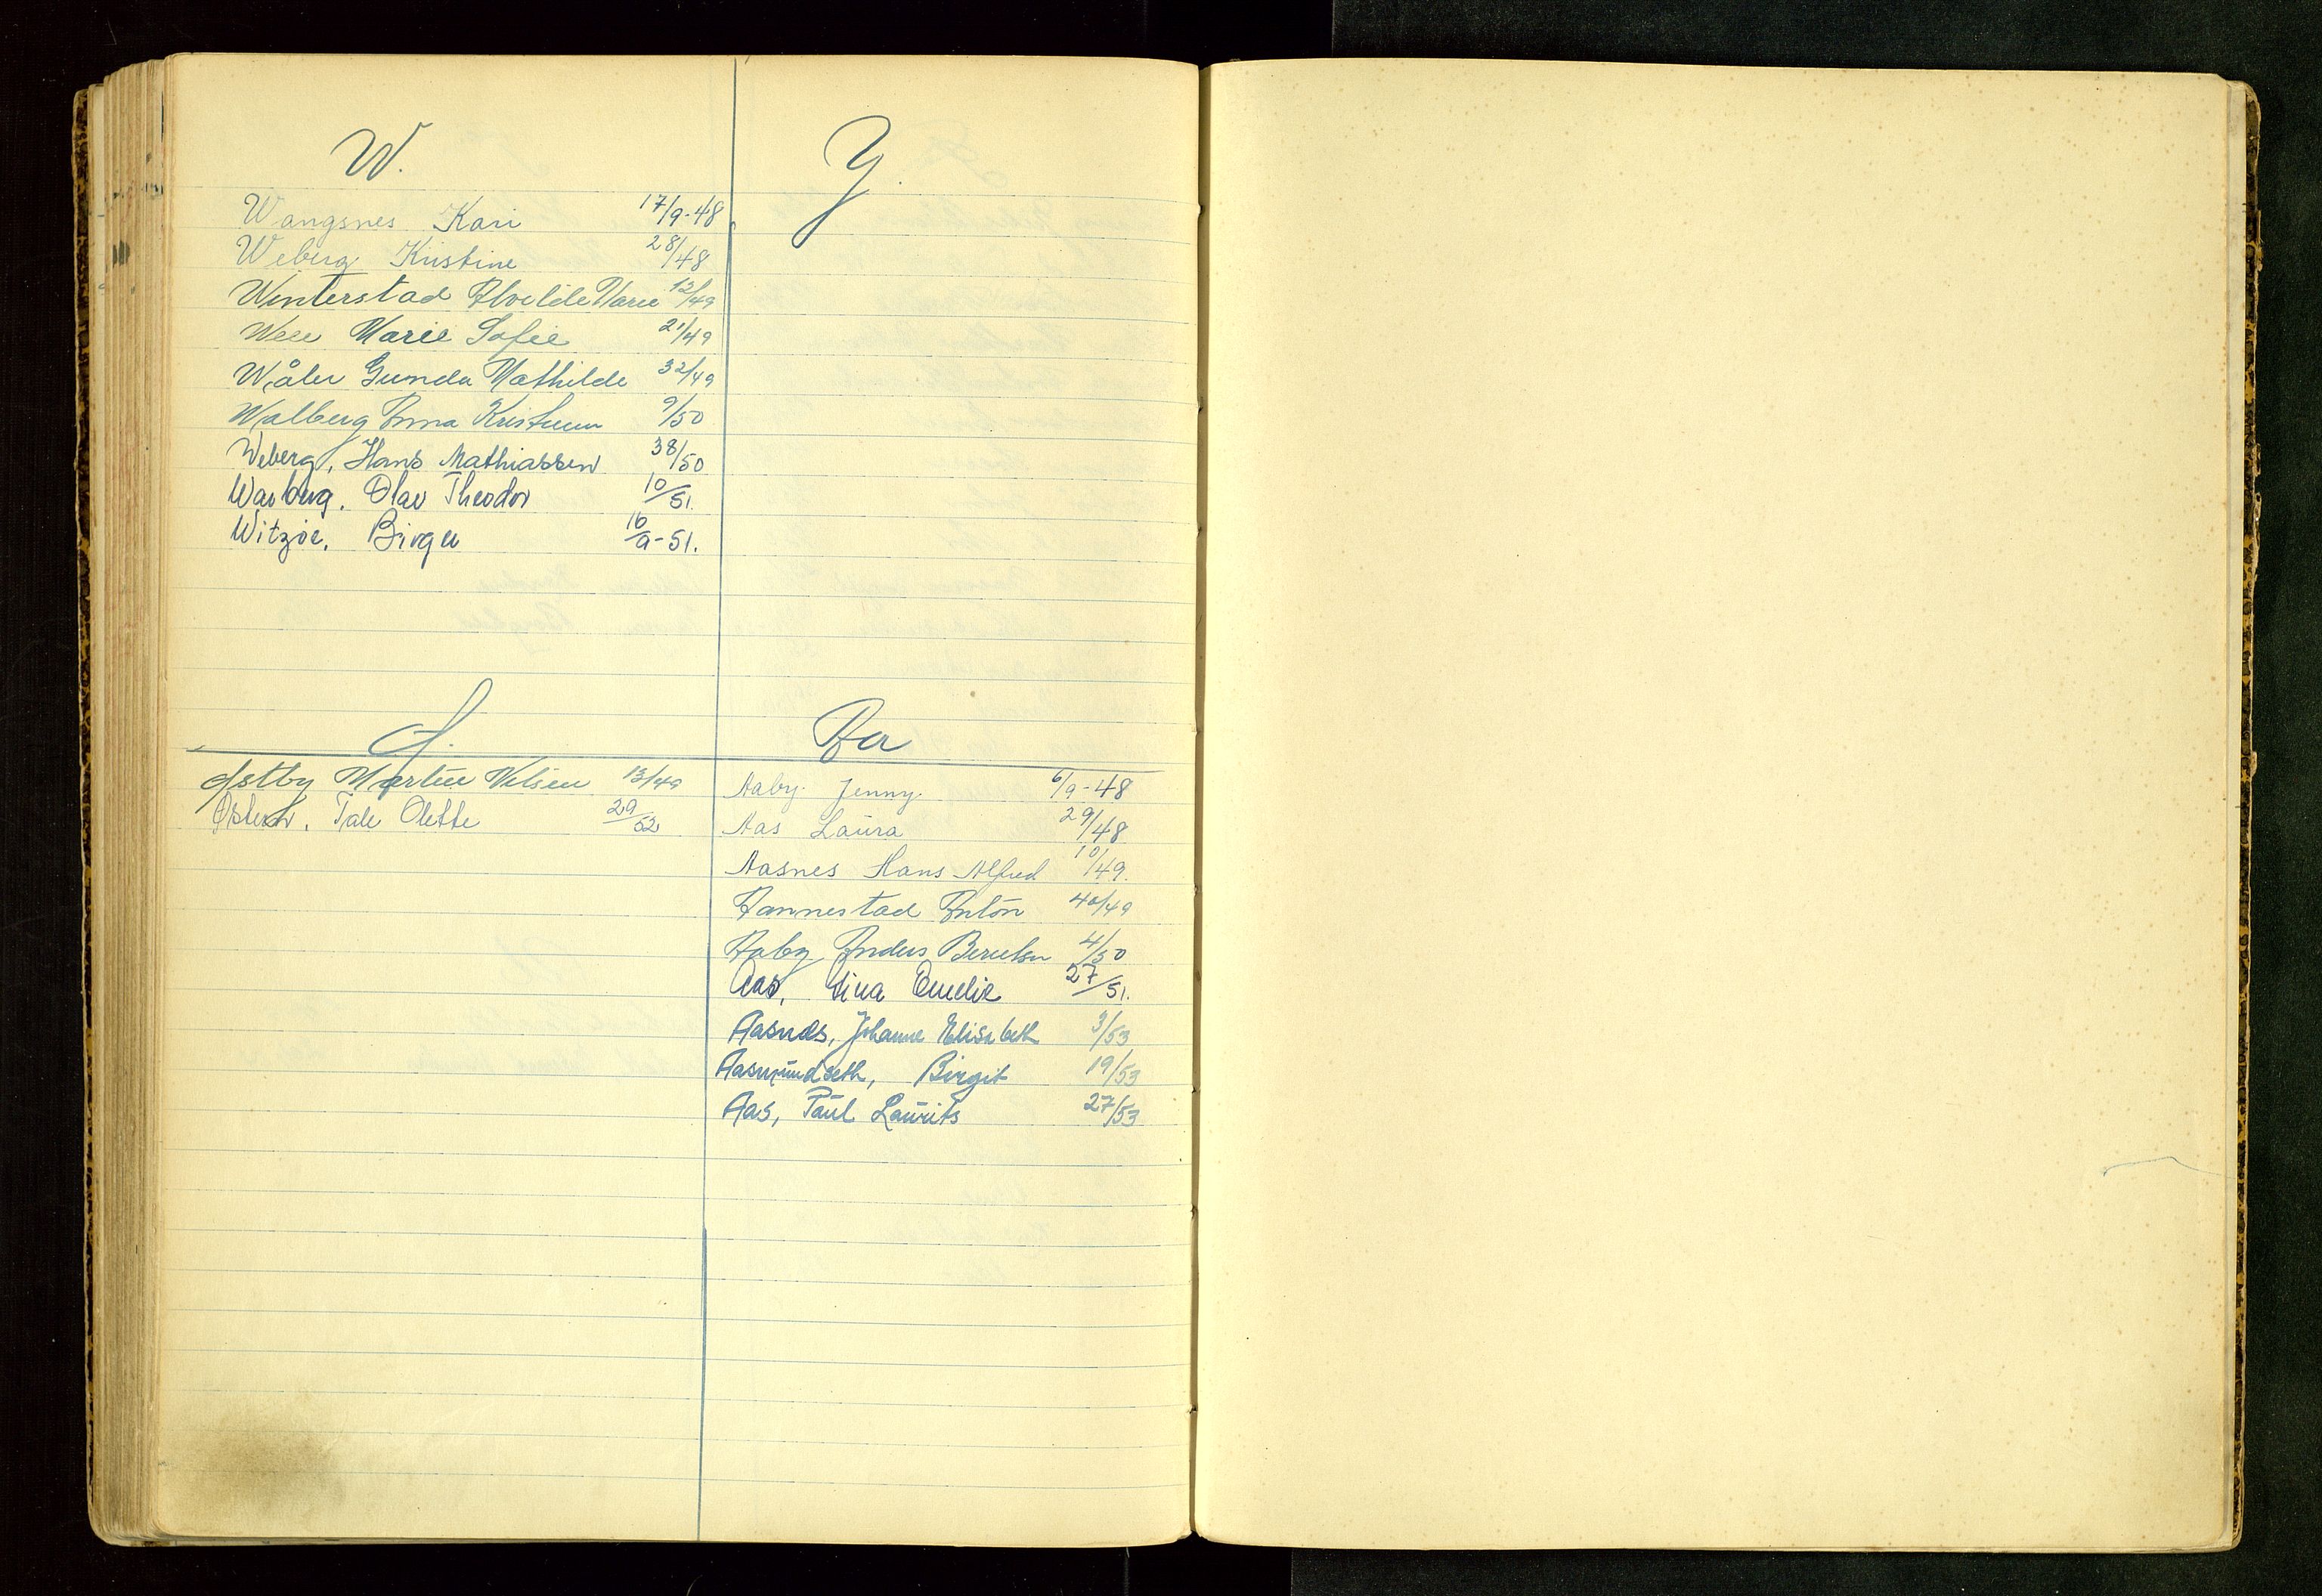 W.
Wangsnes Kari 17/9-48
Weberg Kristine 28/48
Winterstad Alvilde Marie 12/49
Wees Marie Sofie 21/49
Wåler Gunda Mathilde 32/49
Walberg Anna 9/50
Weberg, Hans Mathiassen 38/50
Warberg, Olav Theodor 10/51.
Witzøe, Birger 16/9-51.
Y.
Ø.
Østby Martin Nilsen 13/49
Østerh. Tale Olette 29/52
Aa
Aaby Jenny. 6/9-48
Aas Laura 29/48
Aasnes Hans Alfred 10/49.
Aannestad Anton 40/49
Aaby Anders Berntsen 4/50
Aas, Lina Emelie 27/51.
Aasnes, Johanne Elisabeth 3/53
Aasmundseth, Birgit 19/53
Aas, Paul Laurits 27/53